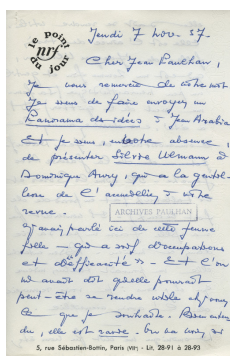 le point
nrf
du jour
Jeudi 7 Nov. 57.
Cher Jean Paulhan,
Je vous remercie de votre mot
Je viens de faire envoyer un
Panorama des idées à Jean
Et je viens, votre absence,
de présenter Silvie Ulmann à
Dominique Aury, qui a la gentil-
lesse de l'accueillir à votre
revue.
ARCHIVES PAULHAN
J'avais parlé ici de cette jeune
fille — qui a soif d'occupations
et d'efficacité — Et l'on
m'avait dit qu'elle pouvait
peut-être se rendre utile chez vous
ce que je souhaite.
du, elle est
5, rue Sébastien-Bottin, Paris (VIIe) - Lit. 28-91 à 28-93